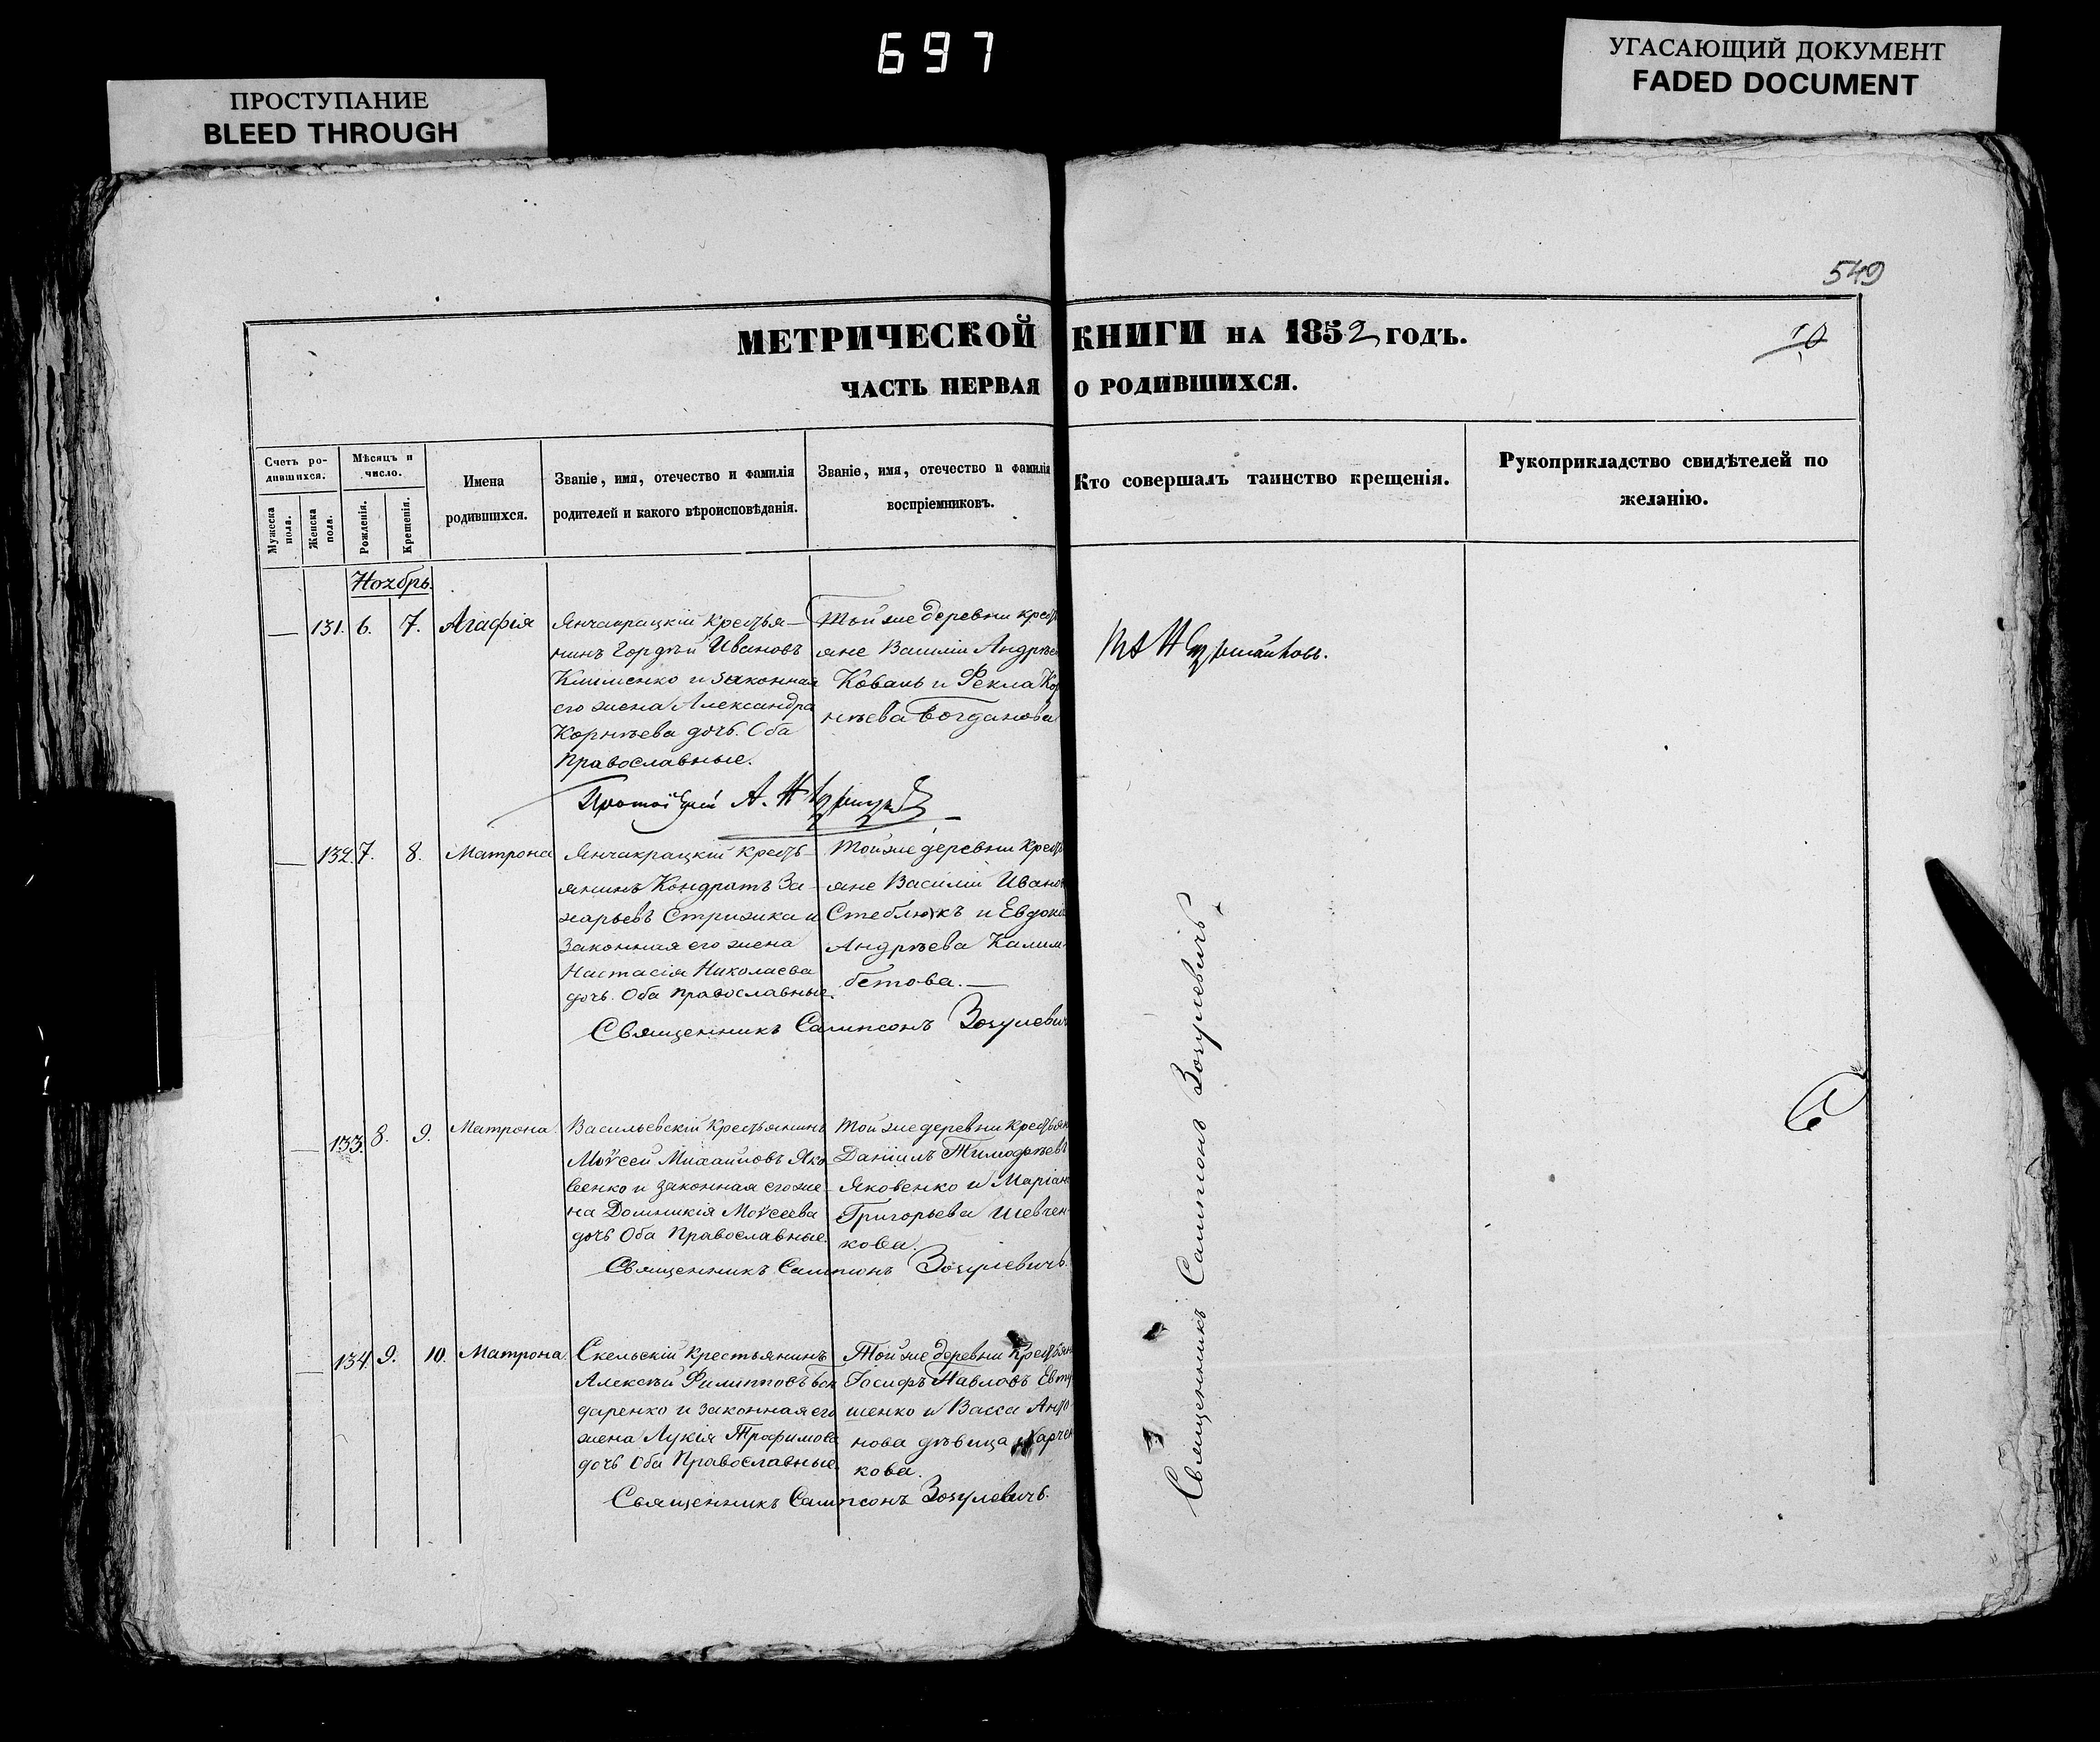 697
ПРОСТУПАНИЕ
BLEED THROUGH
УГАСАЮЩИЙ ДОКУМЕНТ
FADED DOCUMENT
549
МЕТРИЧЕСКОЙ КНИГИ НА 1852 ГОДЪ.
ЧАСТЬ ПЕРВАЯ О РОДИВШИХСЯ.
Счетъ ро-
дившихся.
Мужеска пола.
Женска пола.
Мѣсяцъ и
число.
Рожденія.
Крещенія.
Имена
родившихся.
Званіе, имя, отечество и фамилія
родителей и какого вѣроисповѣданія.
Званіе, имя, отечество и фамилія
воспріемниковъ.
Кто совершалъ таинство крещенія.
Рукоприкладство свидѣтелей по
желанію.
Ноябрь.
— 131. 6. 7. Агафія
Янчакрацкій Кресть-
нинъ Гордѣй Ивановъ
Клименко и законная
его жена Александра
Корнѣева дочь. Оба
Православные.
Той же деревни крест
яне Василій Андрѣе
Коваль и Фекла Кор
нѣева Богданова
А. Н
— 132. 7. 8. Матрона
Янчакрацкій Кресть-
янинъ Кондратъ За-
харьевъ Стрижка и
Законная его жена
Настасія Николаева
дочь. Оба Православные.
Той же деревни Крест
яне Василій Ивано
Стеблюкъ и Евдокі
Андрѣева Калим-
бетова. —
Священникъ Сампсонъ Зозулевич
— 133. 8. 9. Матрона.
Васильевскій Крестьянинъ
Моѵсей Михаиловъ Яко
венко и Законная его же-
на Домникія Моѵсеева
дочь Оба Православные.
Той же деревни Крестьян
Даніилъ Тимофѣевъ
Яковенко и Маріан
Григорьева Шевчен-
кова.
Священникъ Сампсонъ Зозулевичъ.
— 134. 9. 10. Матрона.
Скельскій Крестьянинъ
Алексѣй Филипповъ Бон
даренко и Законная его
жена Лукія Трофимова
дочь Оба Православные.
Той же деревни Крестьян
Іосифъ Павловъ Евту
шенко и Васса Анто
нова дѣвица Харчен
кова.
Священникъ Сампсонъ Зозулевичъ.
Священникъ Сампсонъ Зозулевичъ